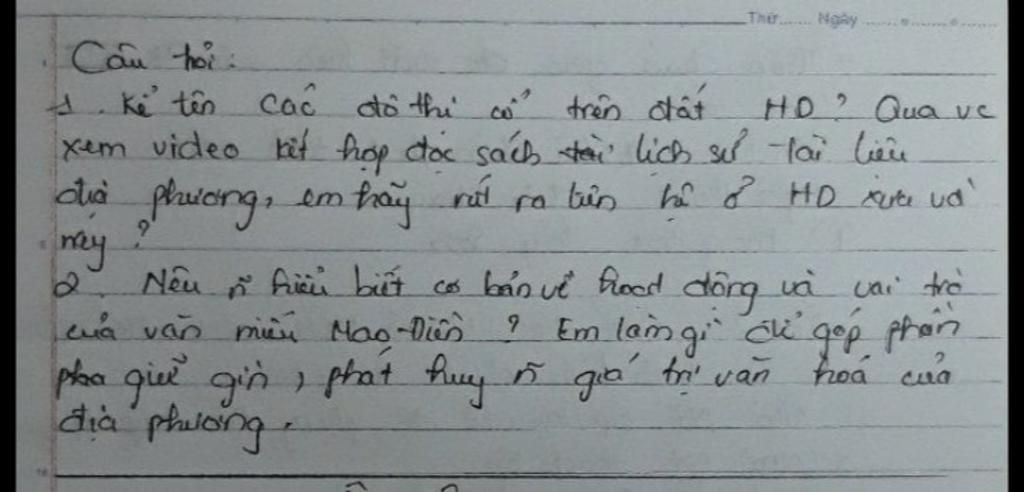 Thứ...... Ngày ...............
Câu hỏi:
1. Kể tên các đô thị cổ trên đất HD? Qua vc
xem video kết hợp đọc sách lịch sử - tài liệu
địa phương, em hãy rút ra liên hệ ở HD xưa và
nay?
2. Nêu n~ hiểu biết cơ bản về hoạt động và vai trò
của văn miếu Mao-Điền? Em làm gì để góp phần
giữ gìn, phát huy n~ giá trị văn hoá của
địa phương.